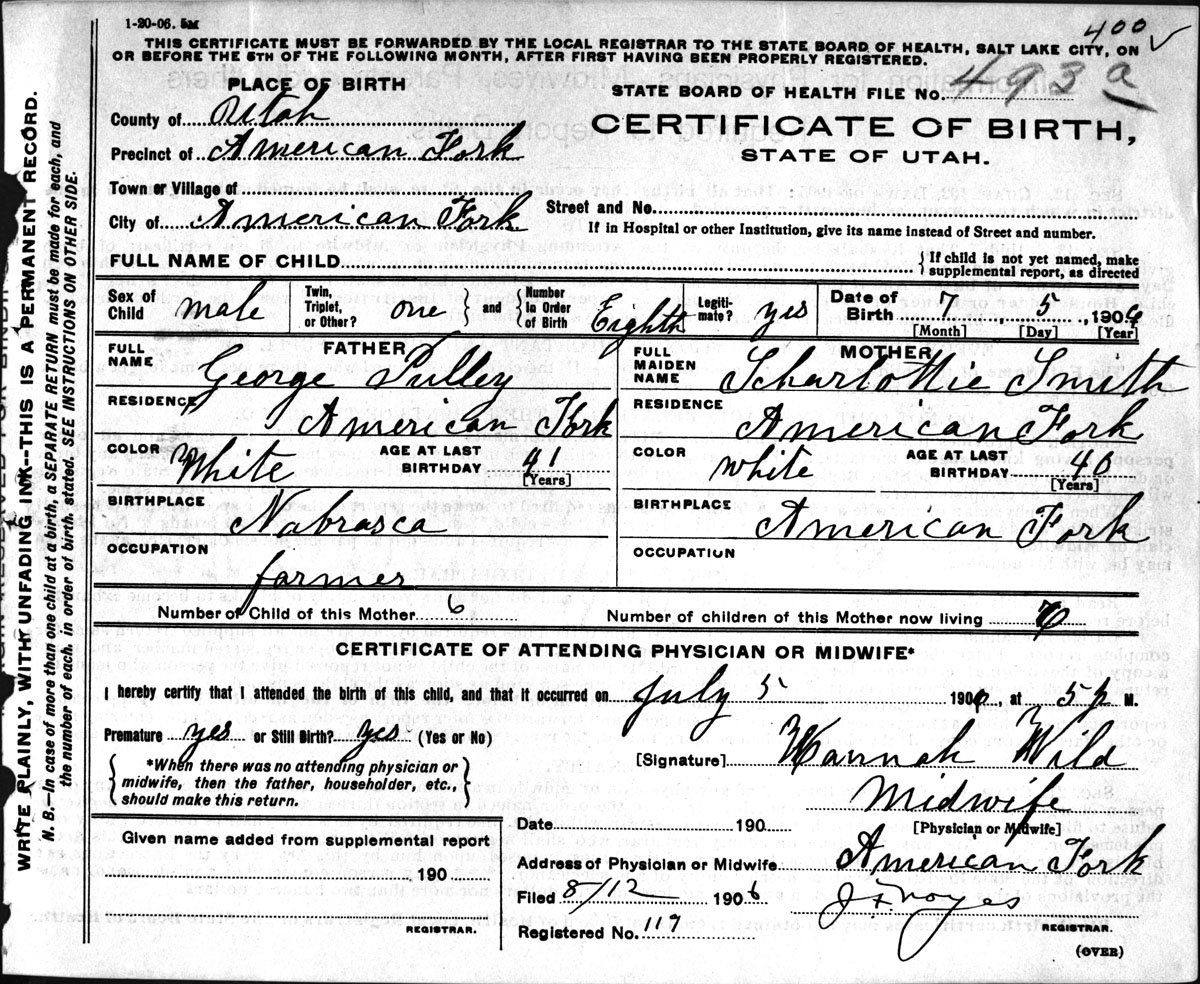 1-20-06. 5M
400 ✓
THIS CERTIFICATE MUST BE FORWARDED BY THE LOCAL REGISTRAR TO THE STATE BOARD OF HEALTH, SALT LAKE CITY, ON
OR BEFORE THE 5TH OF THE FOLLOWING MONTH, AFTER FIRST HAVING BEEN PROPERLY REGISTERED.
PLACE OF BIRTH
STATE BOARD OF HEALTH FILE NO. 493 a
County of Utah
CERTIFICATE OF BIRTH,
Precinct of American Fork
STATE OF UTAH.
Town or Village of
Street and No.
City of American Fork
If in Hospital or other Institution, give its name instead of Street and number.
FULL NAME OF CHILD
If child is not yet named, make
supplemental report, as directed
Sex of Child male Twin, Triplet, or Other? one and Number in Order of Birth Eighth Legitimate? yes Date of Birth 7, 5, 1906
[Month] [Day] [Year]
FATHER
MOTHER
FULL NAME George Pulley
FULL MAIDEN NAME Scharlottie Smith
RESIDENCE American Fork
RESIDENCE American Fork
COLOR White AGE AT LAST BIRTHDAY 41 [Years]
COLOR white AGE AT LAST BIRTHDAY 40 [Years]
BIRTHPLACE Nabrasca
BIRTHPLACE American Fork
OCCUPATION farmer
OCCUPATION
Number of Child of this Mother 6
Number of children of this Mother now living
CERTIFICATE OF ATTENDING PHYSICIAN OR MIDWIFE*
I hereby certify that I attended the birth of this child, and that it occurred on July 5 1906, at 5 P M.
Premature yes or Still Birth? yes (Yes or No)
[Signature] Hannah Wild
*When there was no attending physician or
midwife, then the father, householder, etc.,
should make this return.
Midwife
[Physician or Midwife]
Date 190
Given name added from supplemental report
190
REGISTRAR.
Address of Physician or Midwife American Fork
Filed 8/12 1906 J F Noyes
REGISTRAR.
Registered No. 117
(OVER)
WRITE PLAINLY, WITH UNFADING INK--THIS IS A PERMANENT RECORD.
N. B.—In case of more than one child at a birth, a SEPARATE RETURN must be made for each, and
the number of each, in order of birth, stated. SEE INSTRUCTIONS ON OTHER SIDE.